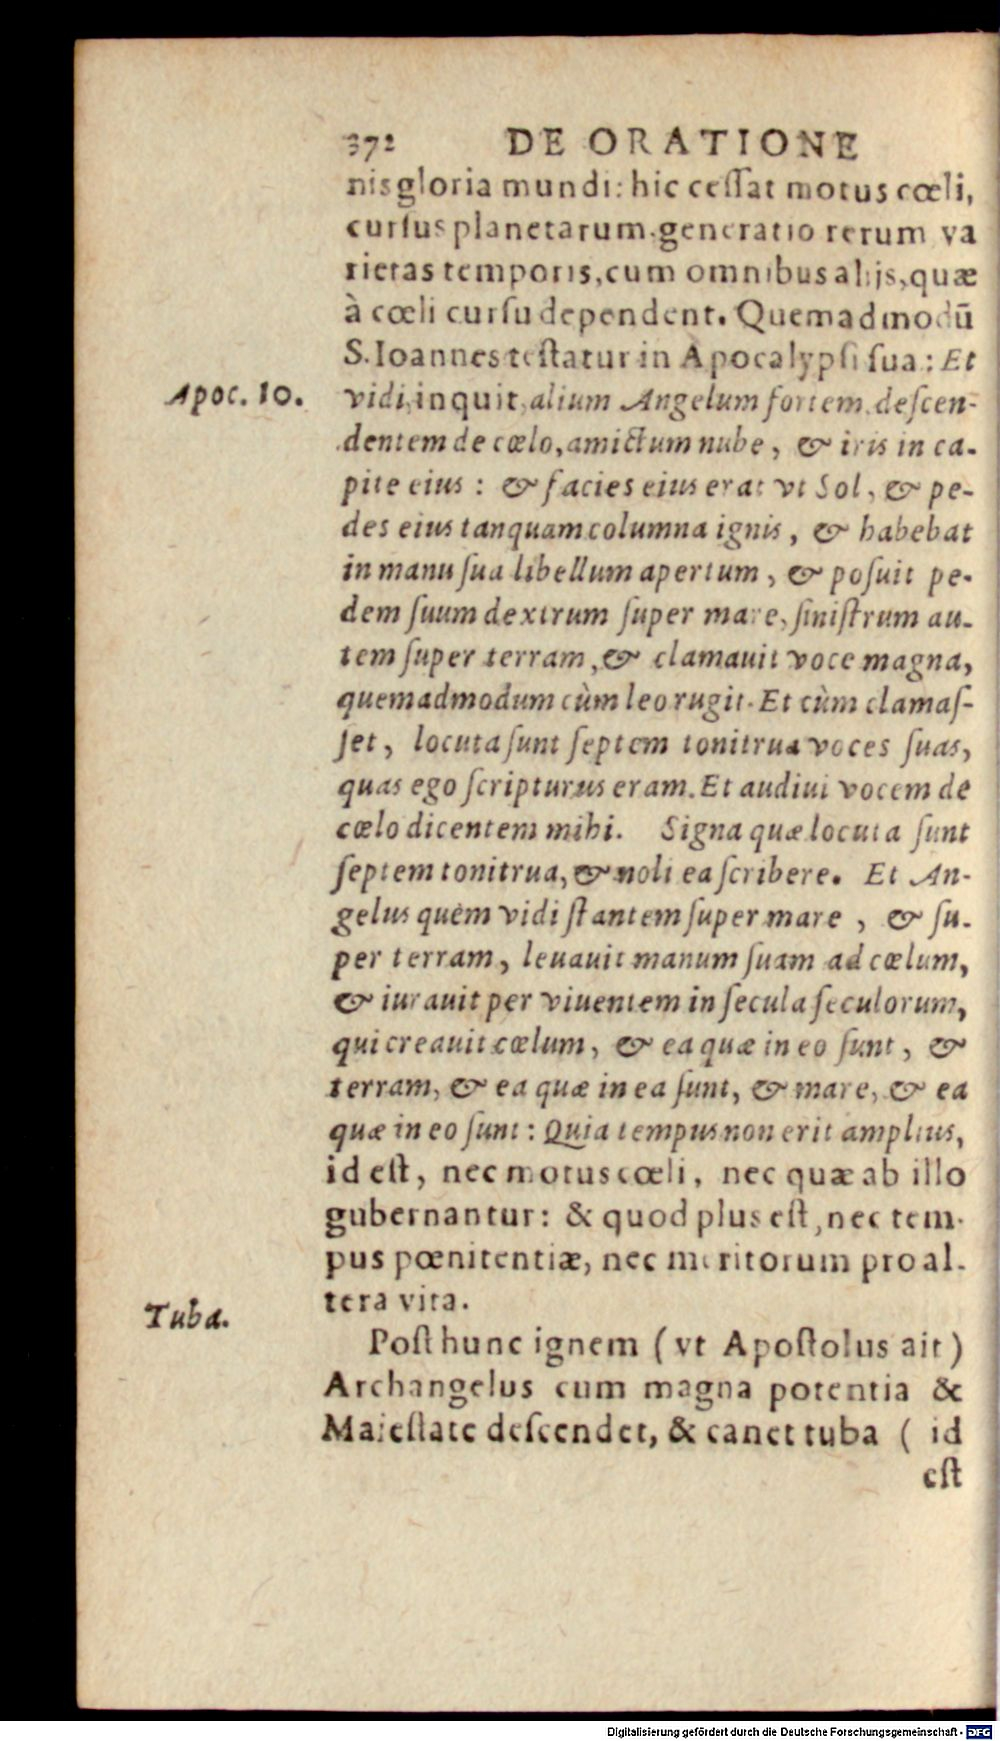 372 DE ORATIONE
nis gloria mundi: hic ceſſat motus cœli,
curſus planetarum. generatio rerum va
rietas temporis, cum omnibus alijs, quæ
à cœli curſu dependent. Quemadmodū
S. Ioannes teſtatur in Apocalypſi ſua: Et
Apoc. 10.
vidi, inquit, alium Angelum fortem deſcen-
dentem de cœlo, amictum nube, & iris in ca-
pite eius: & facies eius erat vt Sol, & pe-
des eius tanquam columna ignis, & habebat
in manu ſua libellum apertum, & poſuit pe-
dem ſuum dextrum ſuper mare, ſiniſtrum au-
tem ſuper terram, & clamauit voce magna,
quemadmodum cùm leo rugit. Et cùm clamaſ-
ſet, locuta ſunt ſeptem tonitrua voces ſuas,
quas ego ſcripturus eram. Et audiui vocem de
cœlo dicentem mihi. Signa quæ locuta ſunt
ſeptem tonitrua, & noli ea ſcribere. Et An-
gelus quem vidi ſtantem ſuper mare, & ſu-
per terram, leuauit manum ſuam ad cœlum,
& iurauit per viuentem in ſecula ſeculorum,
qui creauit cœlum, & ea quæ in eo ſunt, &
terram, & ea quæ in ea ſunt, & mare, & ea
quæ in eo ſunt: Quia tempus non erit amplius,
id eſt, nec motus cœli, nec quæ ab illo
gubernantur: & quod plus eſt, nec tem-
pus pœnitentiæ, nec meritorum pro al-
tera vita.
Tuba.
Poſt hunc ignem (vt Apoſtolus ait)
Archangelus cum magna potentia &
Maieſtate deſcendet, & canet tuba (id
eſt
Digitalisierung gefördert durch die Deutsche Forschungsgemeinschaft - DFG